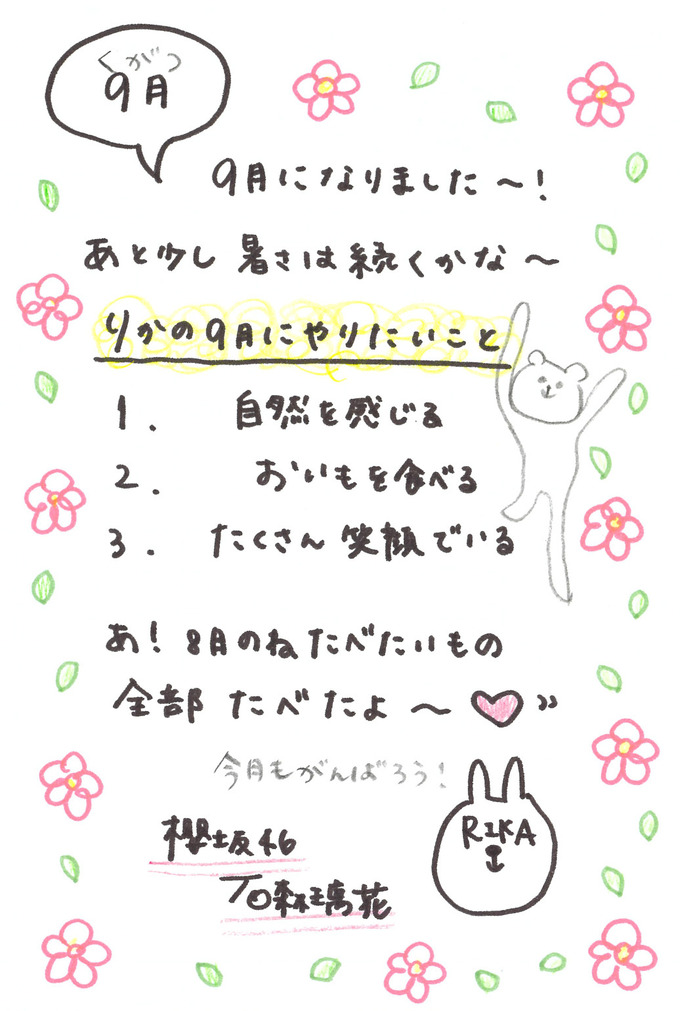 くがつ
9月
9月になりました〜!
あと少し 暑さは続くかな〜
りかの9月にやりたいこと
1. 自然を感じる
2. おいもを食べる
3. たくさん 笑顔でいる
あ! 8月のね たべたいもの
全部 たべたよ〜
今月もがんばろう!
RIKA
櫻坂46
石森璃花